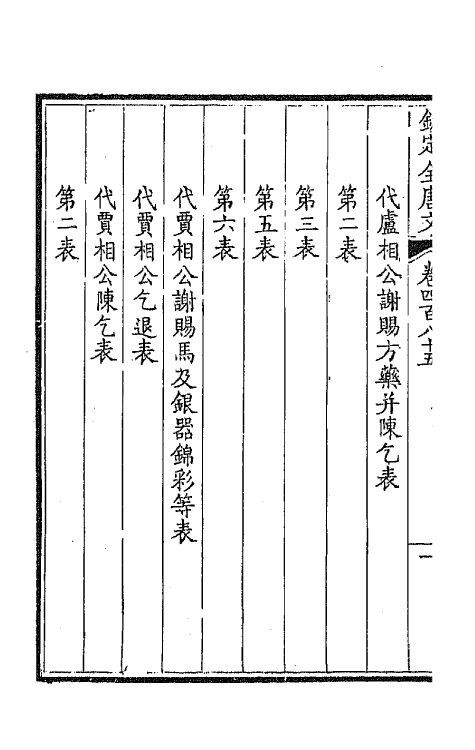 欽定全唐文　卷四百八十五　一
代盧相公謝賜方藥并陳乞表
第二表
第三表
第五表
第六表
代賈相公謝賜馬及銀器錦彩等表
代賈相公乞退表
代賈相公陳乞表
第二表